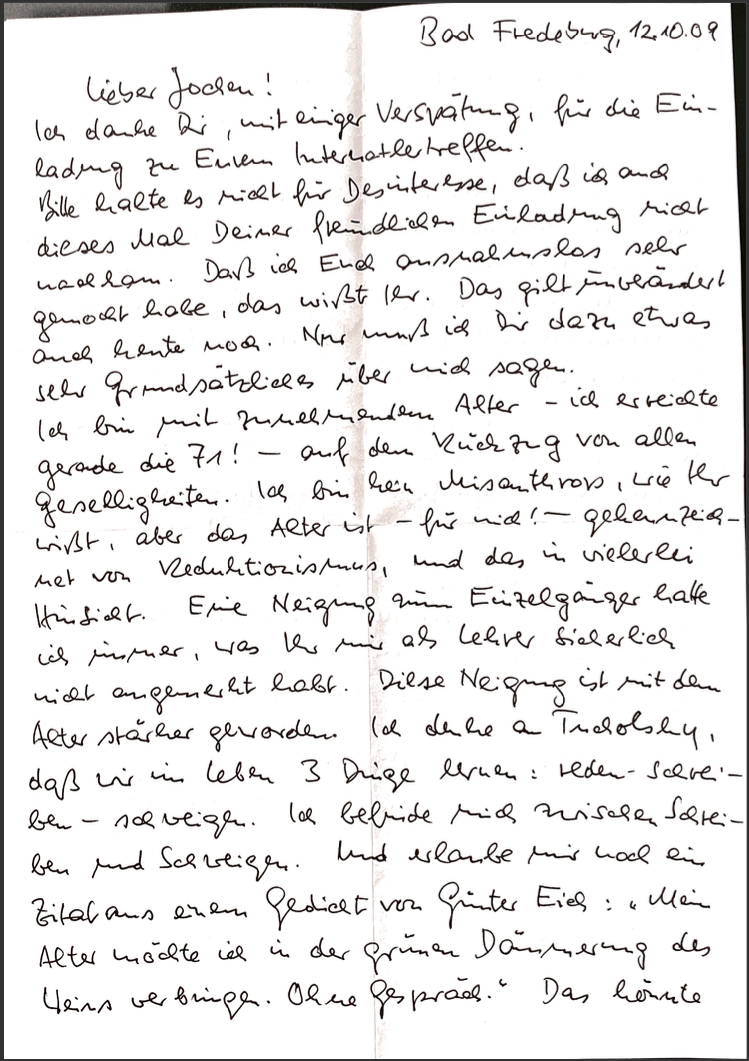 Bad Fredeburg, 12.10.09
Lieber Jochen!
Ich danke Dir, mit einiger Verspätung, für die Ein-
ladung zu Eurem Internatlertreffen.
Bitte halte es nicht für Desinteresse, daß ich auch
dieses Mal Deiner freundlichen Einladung nicht
nachkam. Daß ich Euch ausnahmslos sehr
gemocht habe, das wißt Ihr. Das gilt unverändert
auch heute noch. Nur muß ich Dir dazu etwas
sehr Grundsätzliches über mich sagen.
Ich bin mit zunehmendem Alter – ich erreichte
gerade die 71! – auf dem Rückzug von allen
Geselligkeiten. Ich bin kein Misanthrop, wie Ihr
wißt, aber das Alter ist – für mich! – gekennzeich-
net von Reduktionismus, und das in vielerlei
Hinsicht. Eine Neigung zum Einzelgänger hatte
ich immer, was Ihr mir als Lehrer sicherlich
nicht angemerkt habt. Diese Neigung ist mit dem
Alter stärker geworden. Ich denke an Tucholsky,
daß wir im Leben 3 Dinge lernen: reden – schrei-
ben – schweigen. Ich befinde mich zwischen Schrei-
ben und Schweigen. Und erlaube mir noch ein
Zitat aus einem Gedicht von Günter Eich: „Mein
Alter möchte ich in der grünen Dämmerung des
Weins verbringen. Ohne Gespräch.“ Das könnte